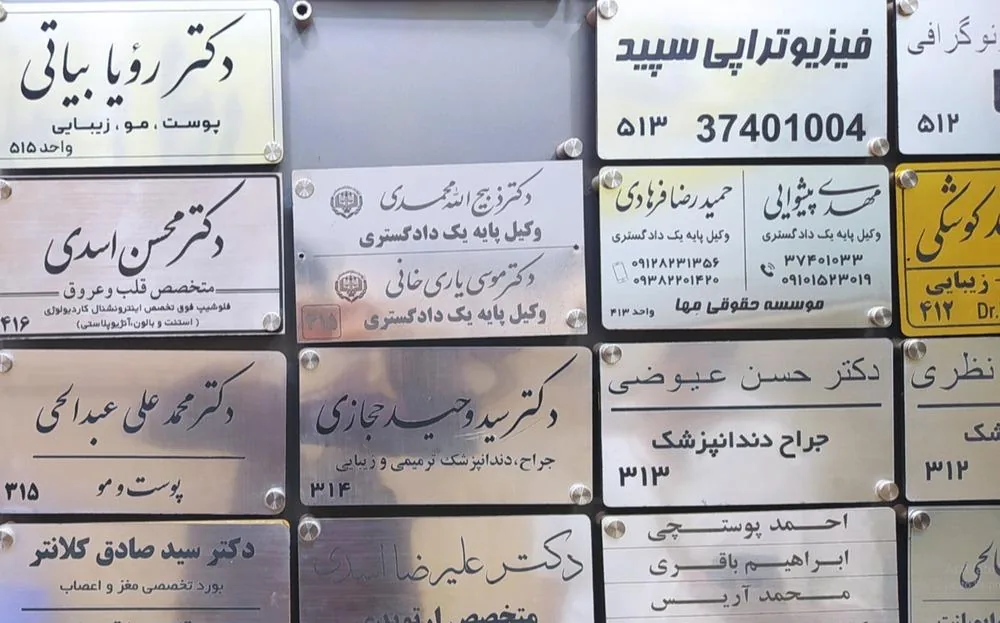 دکتر رؤیا بیاتی
پوست ، مو ، زیبایی
واحد ۵۱۵
فیزیوتراپی سپید
۵۱۳ 37401004
نوگرافی
۵۱۲
دکتر محسن اسدی
متخصص قلب و عروق
فلوشیپ فوق تخصص اینترونشنال کاردیولوژی
( استنت و بالون،آنژیوپلاستی )
۴۱۶
دکتر ذبیح الله محمدی
وکیل پایه یک دادگستری
دکتر موسی یاری خانی
وکیل پایه یک دادگستری
مهدی پیشوایی
وکیل پایه یک دادگستری
۳۷۴۰۱۰۳۳
۰۹۱۰۱۵۲۳۰۱۹
حمیدرضا فرهادی
وکیل پایه یک دادگستری
۰۹۱۲۸۲۳۱۳۵۶
۰۹۳۸۲۲۰۱۴۲۰
موسسه حقوقی مها
واحد ۴۱۳
کوشکی
زیبایی
۴۱۲ Dr.
دکتر محمد علی عبدالحی
پوست و مو
۳۱۵
دکتر سید وحید حجازی
جراح، دندانپزشک ترمیمی و زیبایی
۳۱۴
دکتر حسن عیوضی
جراح دندانپزشک
۳۱۳
نظری
۳۱۲
دکتر سید صادق کلانتر
بورد تخصصی مغز و اعصاب
دکتر علیرضا اسدی
متخصص ارتوپدی
احمد پوستچی
ابراهیم باقری
محمد آریس